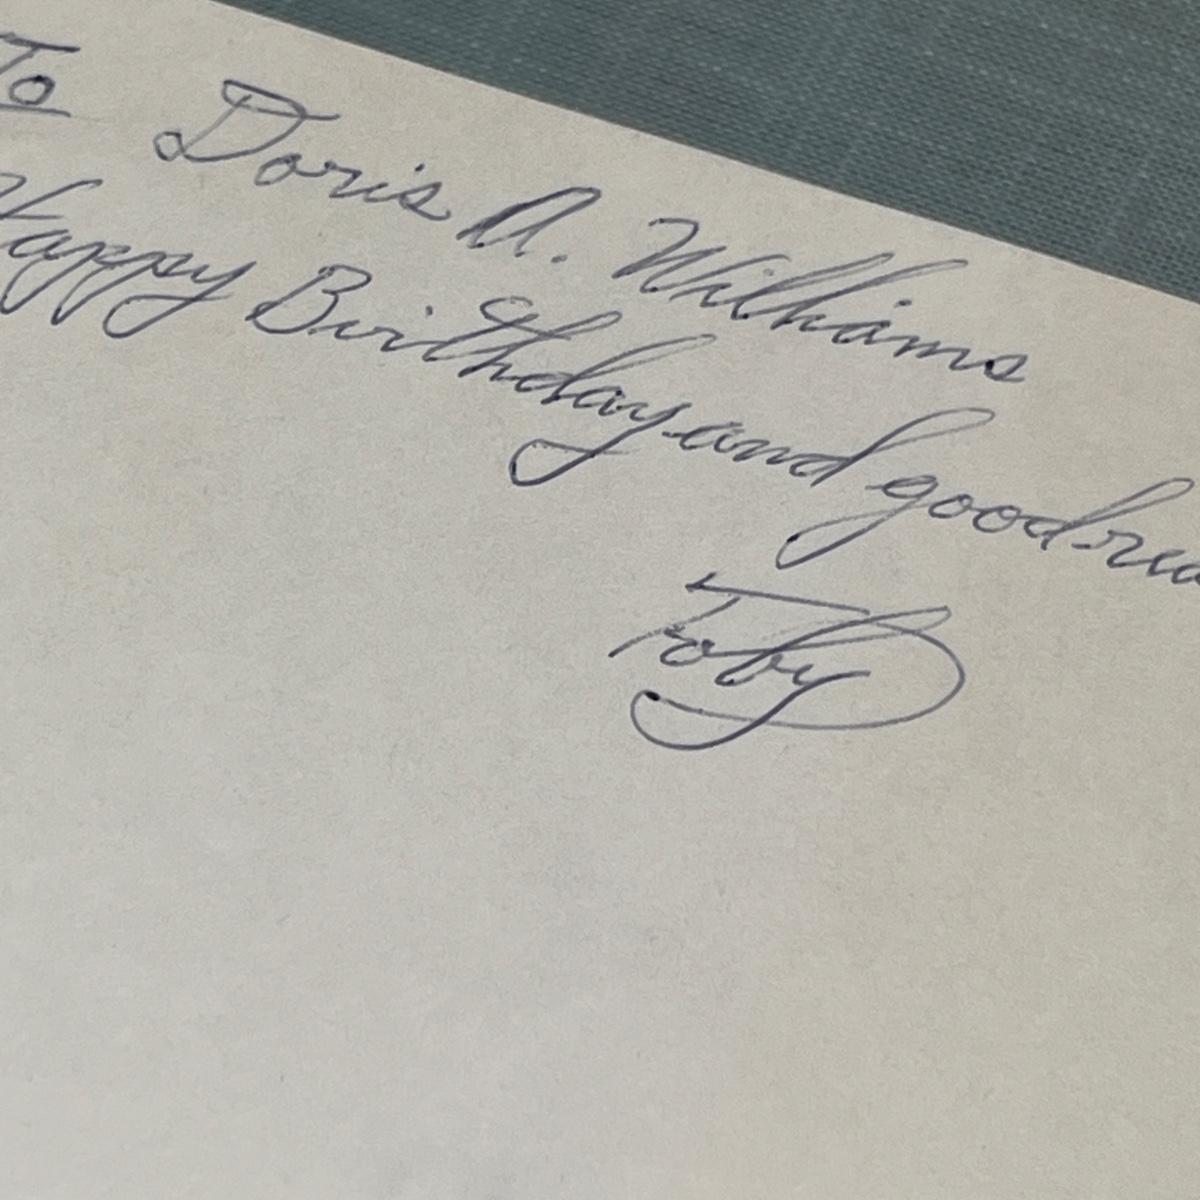 To Doris A. Williams
Happy Birthday and good
Toby